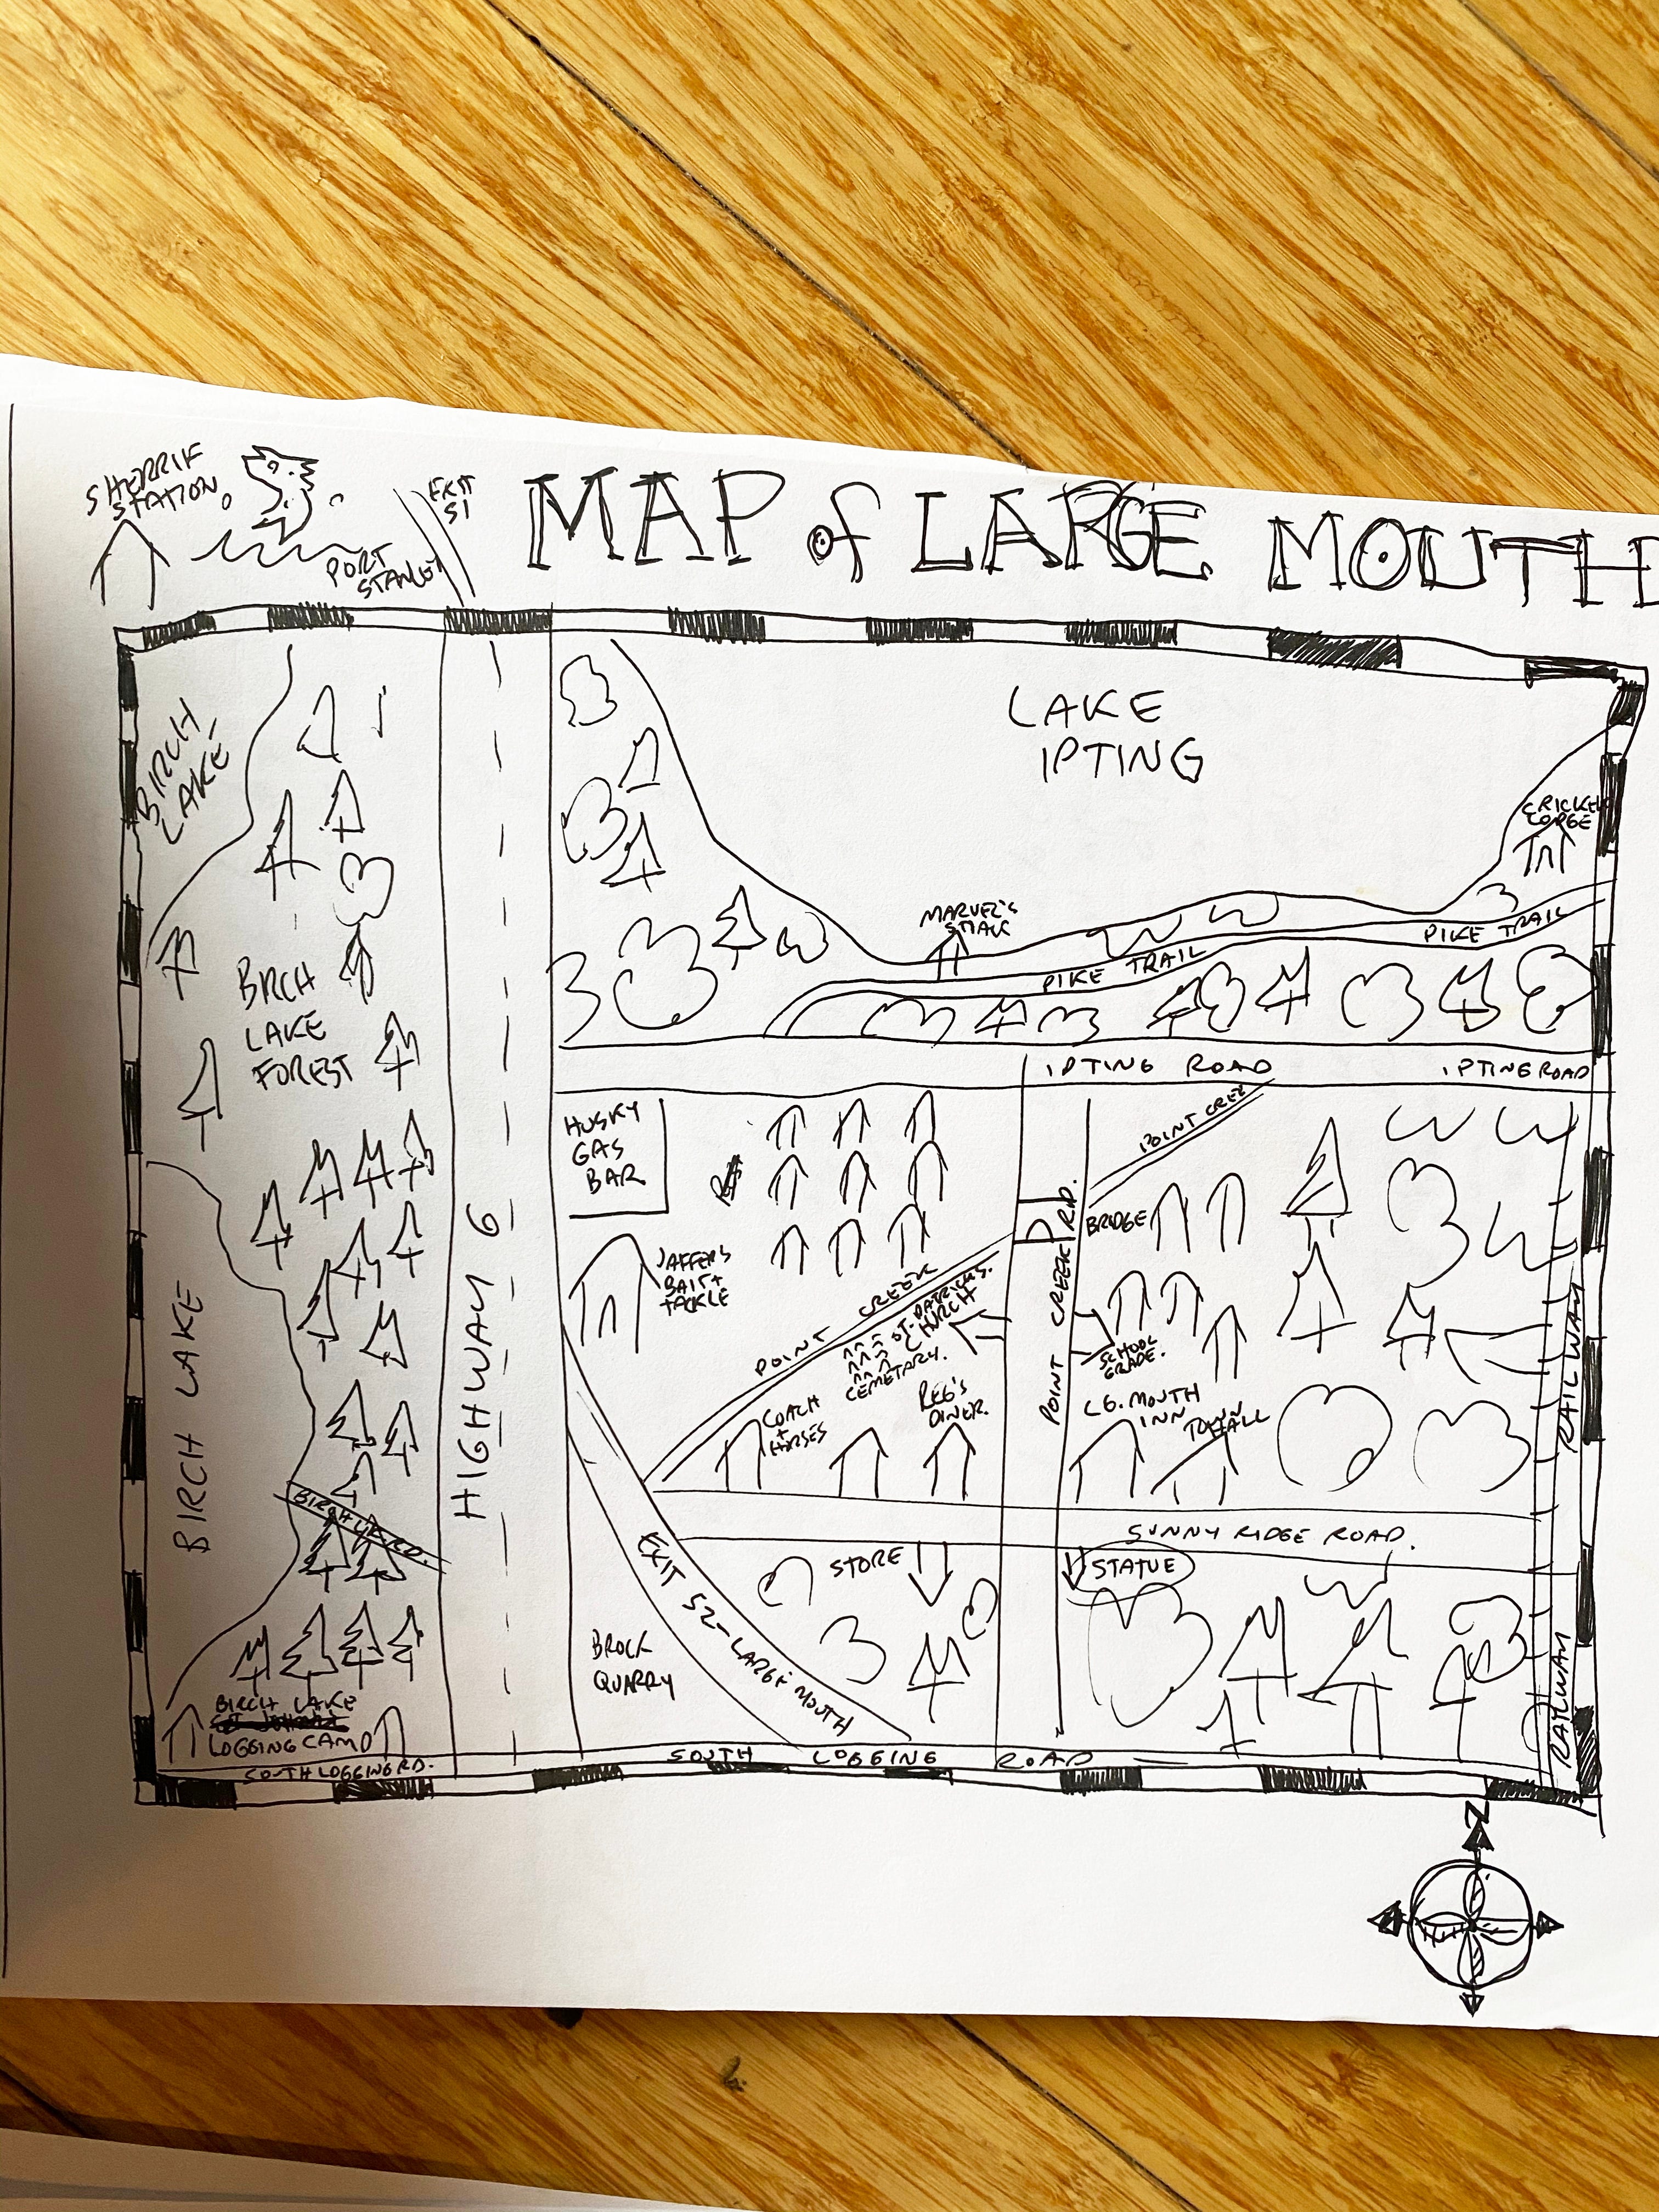 SHERRIF
STATION
PORT
STANLEY
EXIT
51
MAP of LARGE MOUTH
BIRCH
LAKE
LAKE
IPTING
CRICKET
MARVEL'S
PIKE TRAIL
PIKE TRAIL
BIRCH
LAKE
FOREST
IPTING ROAD
IPTING ROAD
HUSKY
GAS
BAR
POINT CREEK
BRIDGE
JAFFER'S
BAIT +
TACKLE
POINT CREEK
ST. PATRICKS
CHURCH
CEMETARY.
POINT CREEK RD.
SCHOOL
GRADE.
BIRCH LAKE
HIGHWAY 6
COACH
+
HORSES
REG'S
DINER.
LG. MOUTH
INN
TOWN
HALL
RAILWAY
BIRCH LK RD.
SUNNY RIDGE ROAD.
EXIT 52-LARGE MOUTH
STORE
STATUE
BROCK
QUARRY
RAILWAY
BIRCH LAKE
LOGGING CAMP
SOUTH LOGGING RD.
SOUTH LOGGING ROAD
N